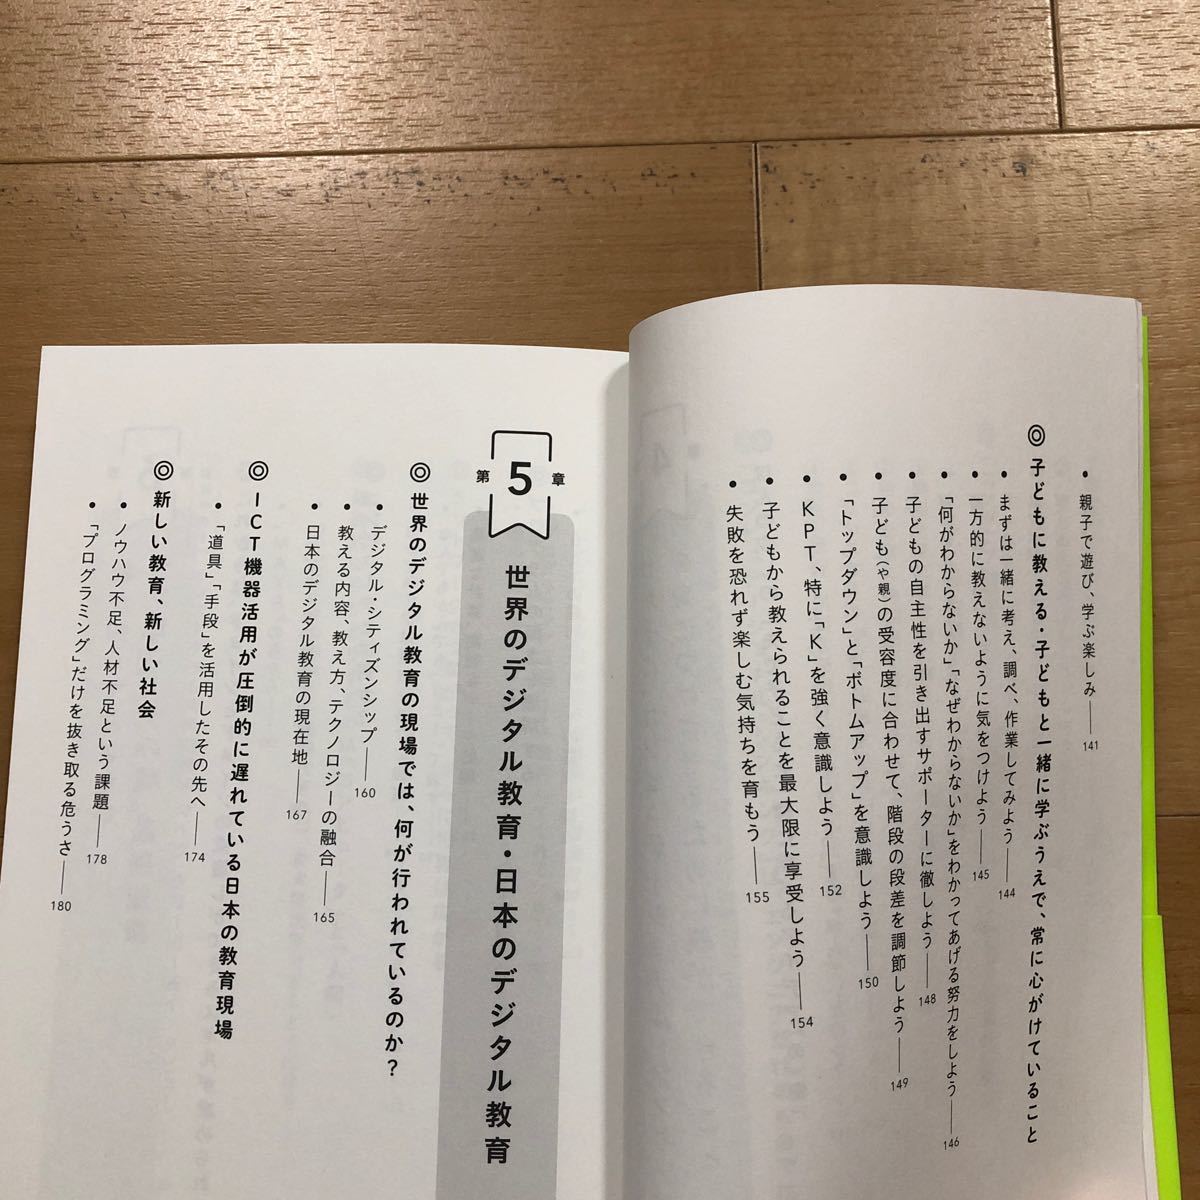 ・親子で遊び、学ぶ楽しみ――141
◎子どもに教える・子どもと一緒に学ぶうえで、常に心がけていること
・まずは一緒に考え、調べ、作業してみよう――144
・一方的に教えないように気をつけよう――145
・「何がわからないか」「なぜわからないか」をわかってあげる努力をしよう――146
・子どもの自主性を引き出すサポーターに徹しよう――148
・子ども(や親)の受容度に合わせて、階段の段差を調節しよう――149
・「トップダウン」と「ボトムアップ」を意識しよう――150
・KPT、特に「K」を強く意識しよう――152
・子どもから教えられることを最大限に享受しよう――154
・失敗を恐れず楽しむ気持ちを育もう――155
第5章
世界のデジタル教育・日本のデジタル教育
◎世界のデジタル教育の現場では、何が行われているのか?
・デジタル・シティズンシップ――160
・教える内容、教え方、テクノロジーの融合――165
・日本のデジタル教育の現在地――167
◎ICT機器活用が圧倒的に遅れている日本の教育現場
・「道具」「手段」を活用したその先へ――174
◎新しい教育、新しい社会
・ノウハウ不足、人材不足という課題――178
・「プログラミング」だけを抜き取る危うさ――180